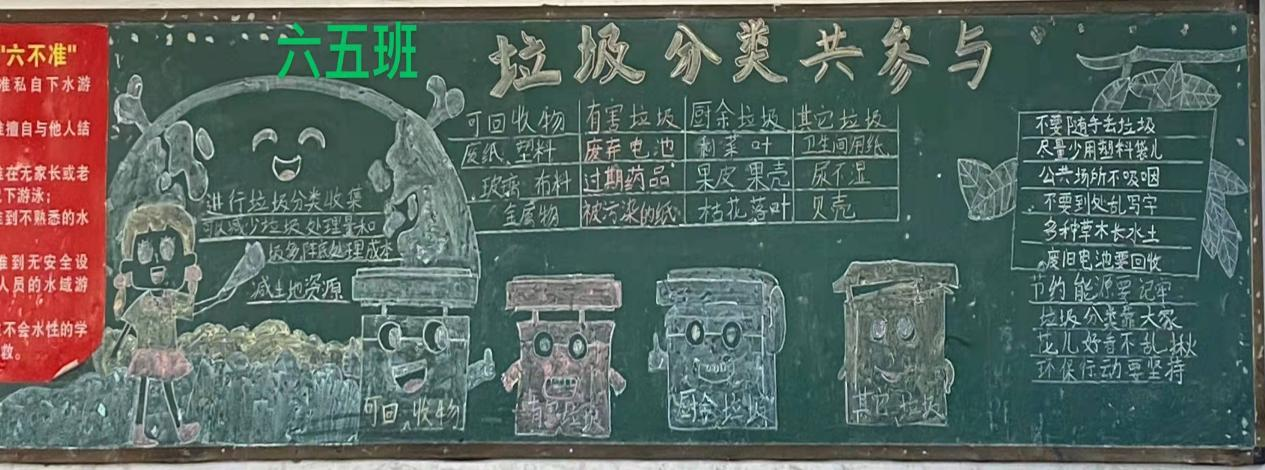 "六不准"
准私自下水游
准擅自与他人结
准在无家长或老
况下游泳;
准到不熟悉的水
准到无安全设
人员的水域游
不会水性的学
救。
六五班
垃圾分类共参与
进行垃圾分类收集
可以减少垃圾处理量和
降低处理成本
减土地资源
可回收物 有害垃圾 厨余垃圾 其它垃圾
废纸、塑料 废弃电池 剩菜叶 卫生间用纸
玻璃 布料 过期药品 果皮果壳 尿不湿
金属物 被污染的纸 枯花落叶 贝壳
不要随手丢垃圾
尽量少用塑料袋儿
公共场所不吸咽
不要到处乱写字
多种草木长水土
废旧电池要回收
节约能源要记牢
垃圾分类靠大家
花儿好看不乱揪
环保行动要坚持
可回收物
有害垃圾
厨余垃圾
其它垃圾